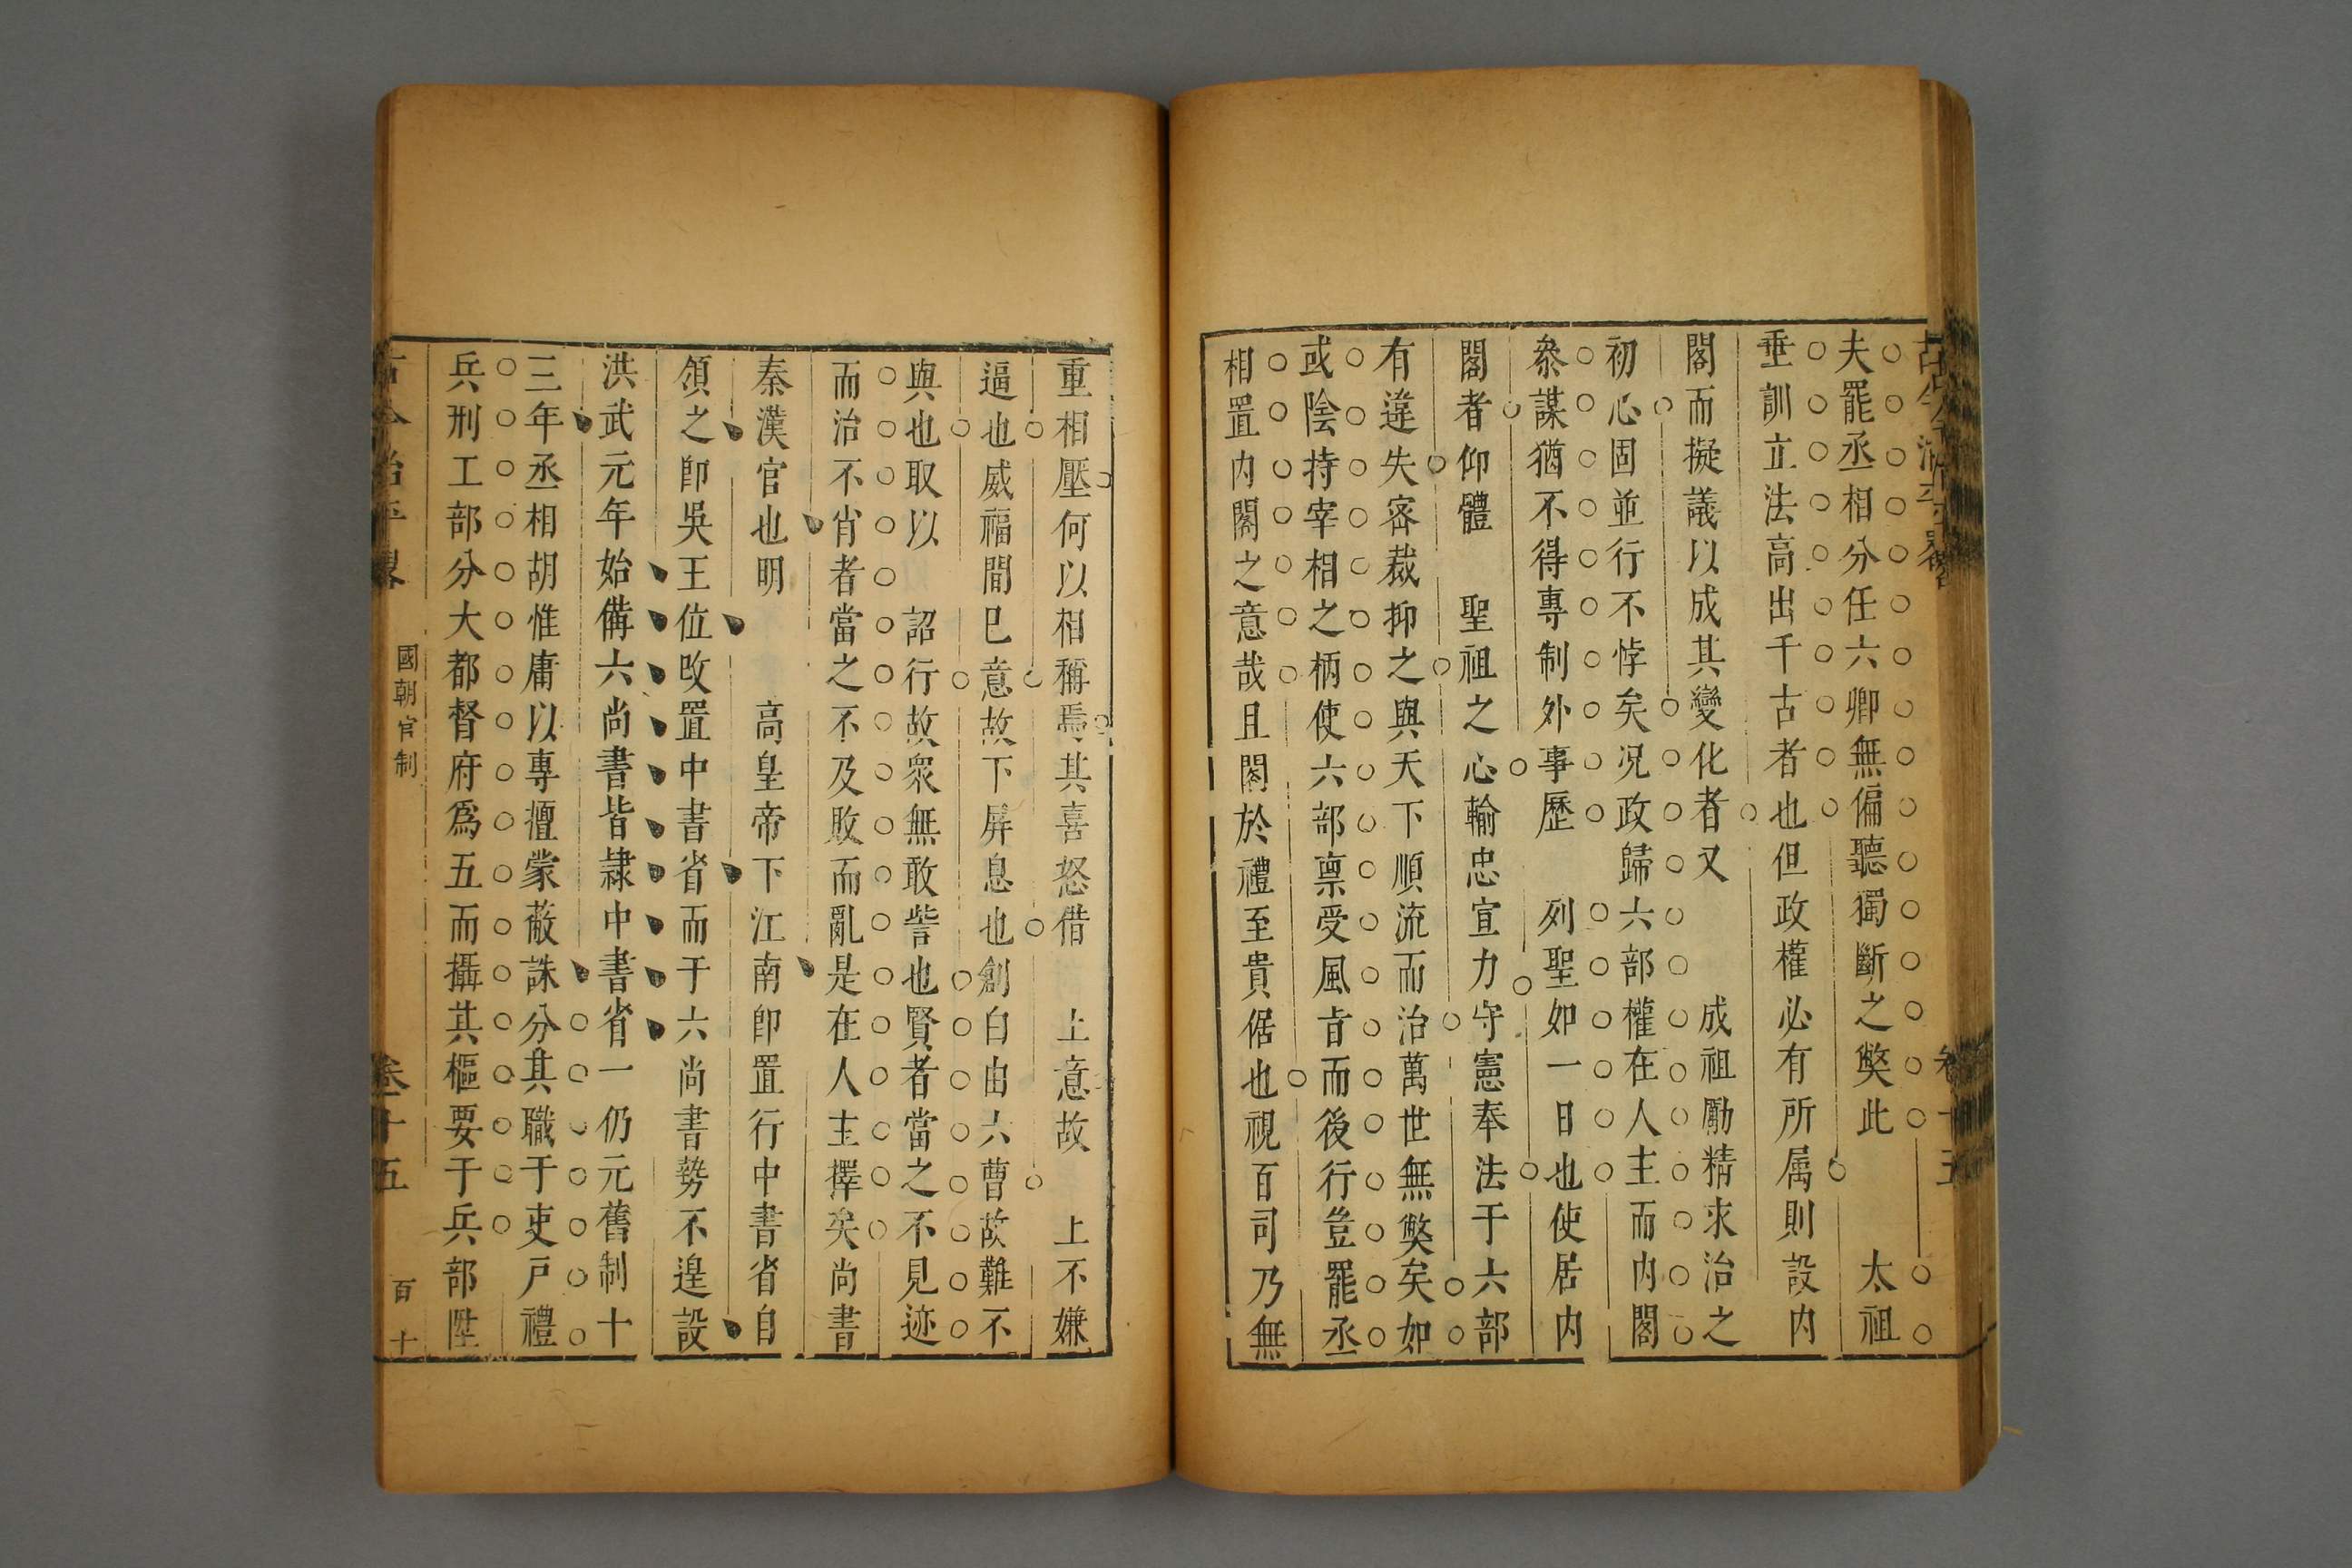 夫罷丞相分任六卿無偏聽獨斷之獘此　太祖
垂訓立法高出千古者也但政權必有所属則設内
閣而擬議以成其變化者又　成祖勵精求治之
初心固並行不悖矣况政歸六部權在人主而内閣
叅謀猶不得專制外事歷　列聖如一日也使居内
閣者仰體　聖祖之心輸忠宣力守憲奉法于六部
有違失密裁抑之與天下順流而治萬世無獘矣如
或陰持宰相之柄使六部禀受風旨而後行豈罷丞
相置内閣之意哉且閣於禮至貴倨也視百司乃無
重相壓何以相稱焉其喜怒借　上意故　上不嫌
逼也威福間巳意故下屏息也創白由六曹故難不
與也取以　詔行故衆無敢訾也賢者當之不見迹
而治不肖者當之不及敗而亂是在人主擇矣尚書
秦漢官也明　高皇帝下江南即置行中書省自
領之即吳王位改置中書省而于六尚書勢不遑設
洪武元年始備六尚書皆隷中書省一仍元舊制十
三年丞相胡惟庸以專擅蒙蔽誅分其職于吏戸禮
兵刑工部分大都督府爲五而攝其樞要于兵部陞
古今治平畧　國朝官制　卷十五　百十